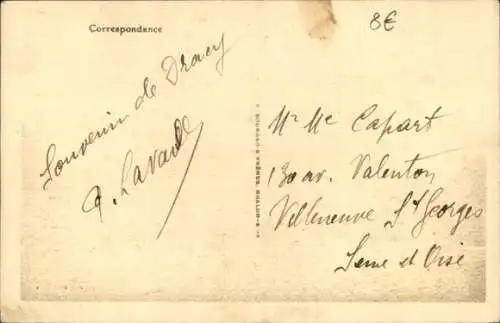 Correspondance
8€
Souvenir de Dracy
P. Lavault
Mr Me Capart
130 av. Valenton
Villeneuve St Georges
Seine et Oise